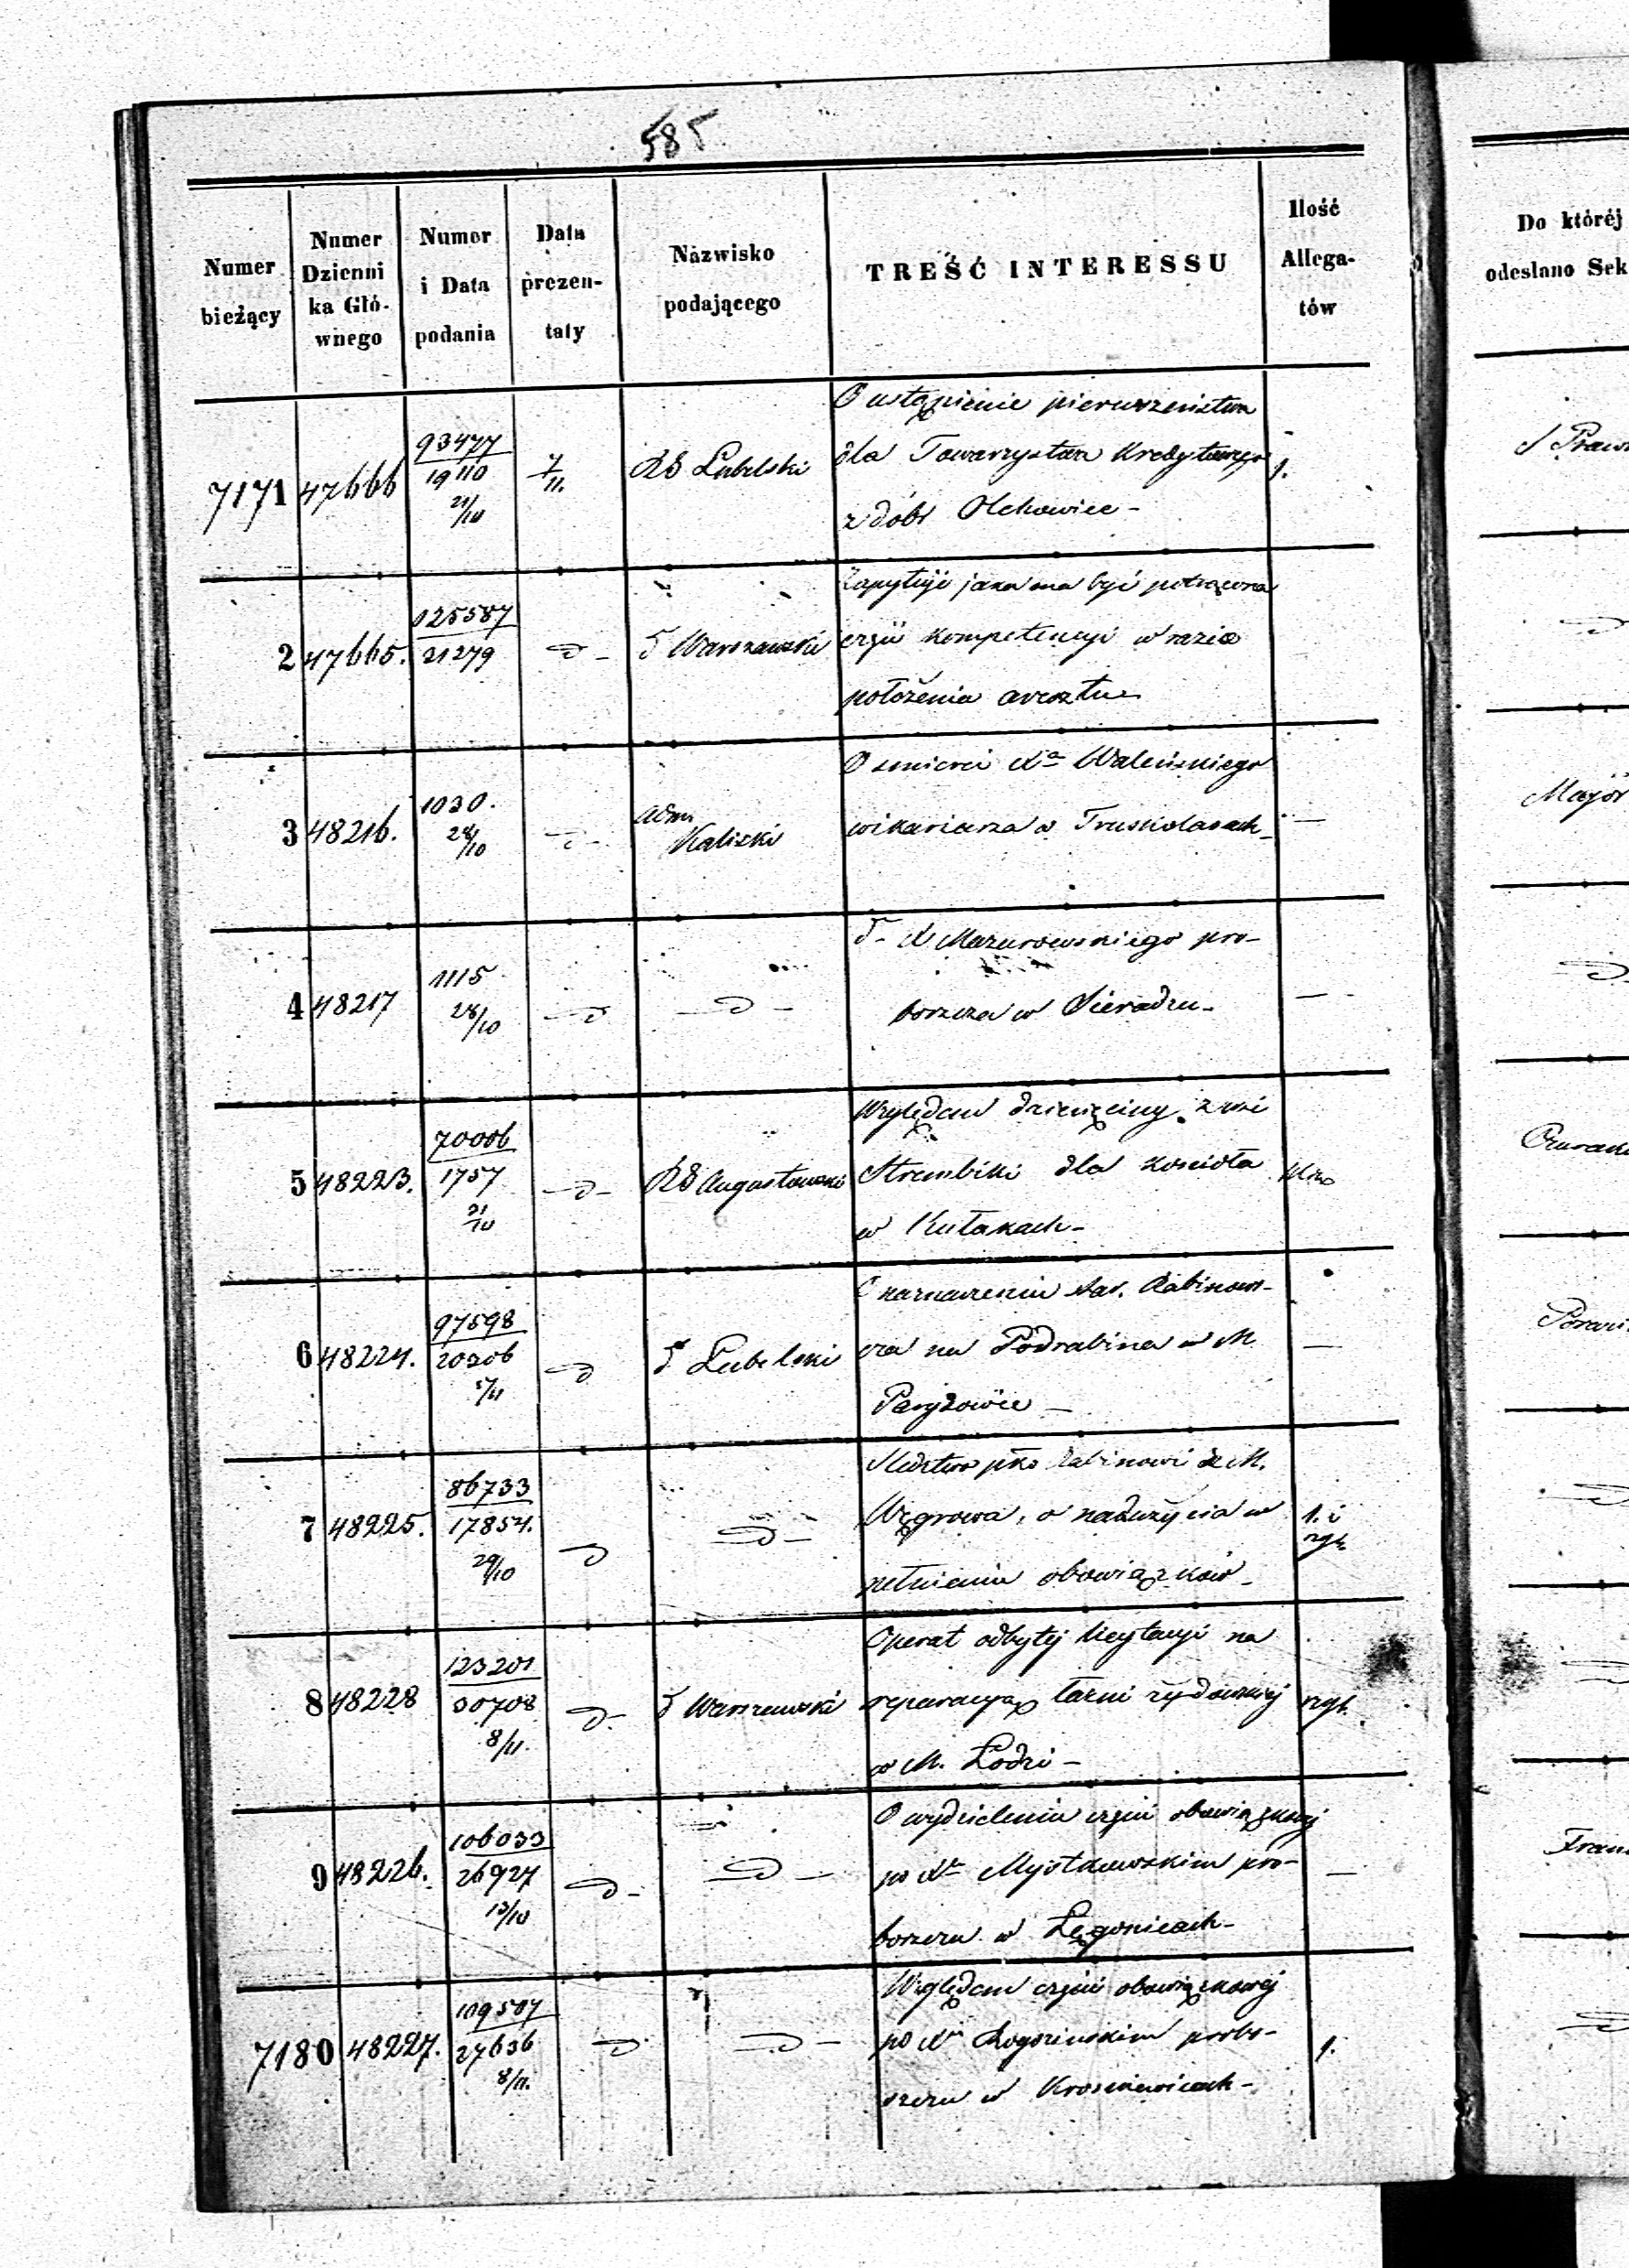 585
Numer bieżący
Numer Dzienni ka Głó- wnego
Numer i Data podania
Data prezen- taty
Nazwisko podającego
TREŚĆ INTERESSU
Ilość Allega- tów
Do któréj
odesłano Sek
7171 47666 93477 19110 21/10 7/11. RG Lubelski
O ustąpienie pierwszeństwa
dla Towarzystwa Kredytowego 1.
z dóbr Olchowiec -
2 47665. 125587 21279 -d- d Warszawski
Zapytuje jaka ma być potrącona
część kompetencyi w razie
położenia aresztu
3 48216. 1030. 28/10 -d- Adm. Kaliski
O śmierci Xa Waleńskiego
wikariusza w Truskolasach -
4 48217 1115 28/10 -d- -d-
d- X Mazurowskiego pro-
boszcza w Sieradzu -
5 48223. 70006 1757 21/10 -d- RG Augustowski
Względem dziesięciny z wsi
Strembiki dla kościoła
w Kułakach -
6 48224. 97598 20206 5/11 -d d Lubelski
O naznaczeniu Rabinowi-
cza na Podrabina w M.
Paryżowie -
7 48225. 86733 17854. 29/10 -d -d-
Śledztwo pko Rabinowi z M.
Węgrowa, o nadużycia w 1. i
pełnieniu obowiązków -
8 48228 123201 30708 8/11. -d- d Warszawski
Operat odbytej licytacyi na
reparacyą łaźni żydowskiej
w M. Łodzi -
9 48226. 106033 26927 13/10 -d- -d-
O wydzieleniu części obowiązkowej
po Xu Mysłakowskim pro-
boszczu w Łęgonicach -
7180 48227. 109507 27636 8/11. -d- -d-
Względem części obowiązkowej
po Xu Rogozińskim probo- 1.
szczu w Krośniewicach -